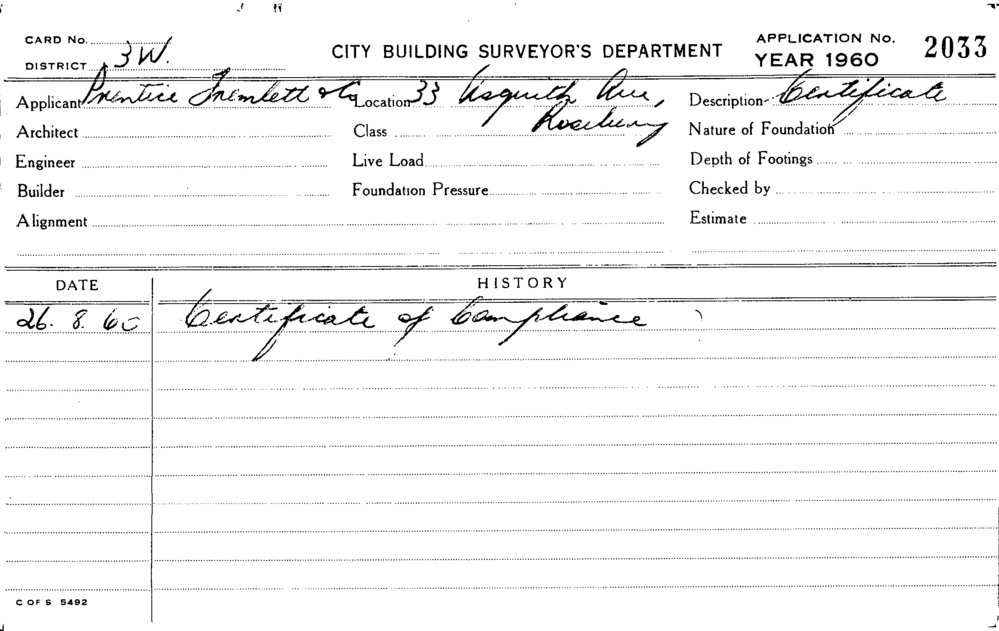 CARD No. CITY BUILDING SURVEYOR'S DEPARTMENT APPLICATION No. 2033
DISTRICT 3W. YEAR 1960
Applicant Prentice Tremlett & Co Location 33 Asquith Ave, Description- Certificate
Architect Class Rosebery Nature of Foundation
Engineer Live Load Depth of Footings
Builder Foundation Pressure Checked by
Alignment Estimate
DATE HISTORY
26. 8. 60 Certificate of Compliance
C OF S 5492